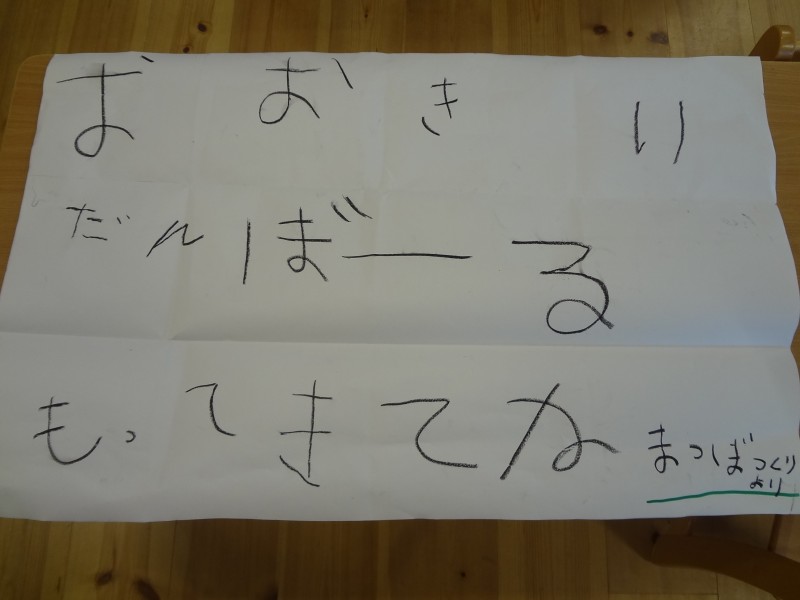 おおきい
だんぼーる
もってきてな
まつぼっくり
より